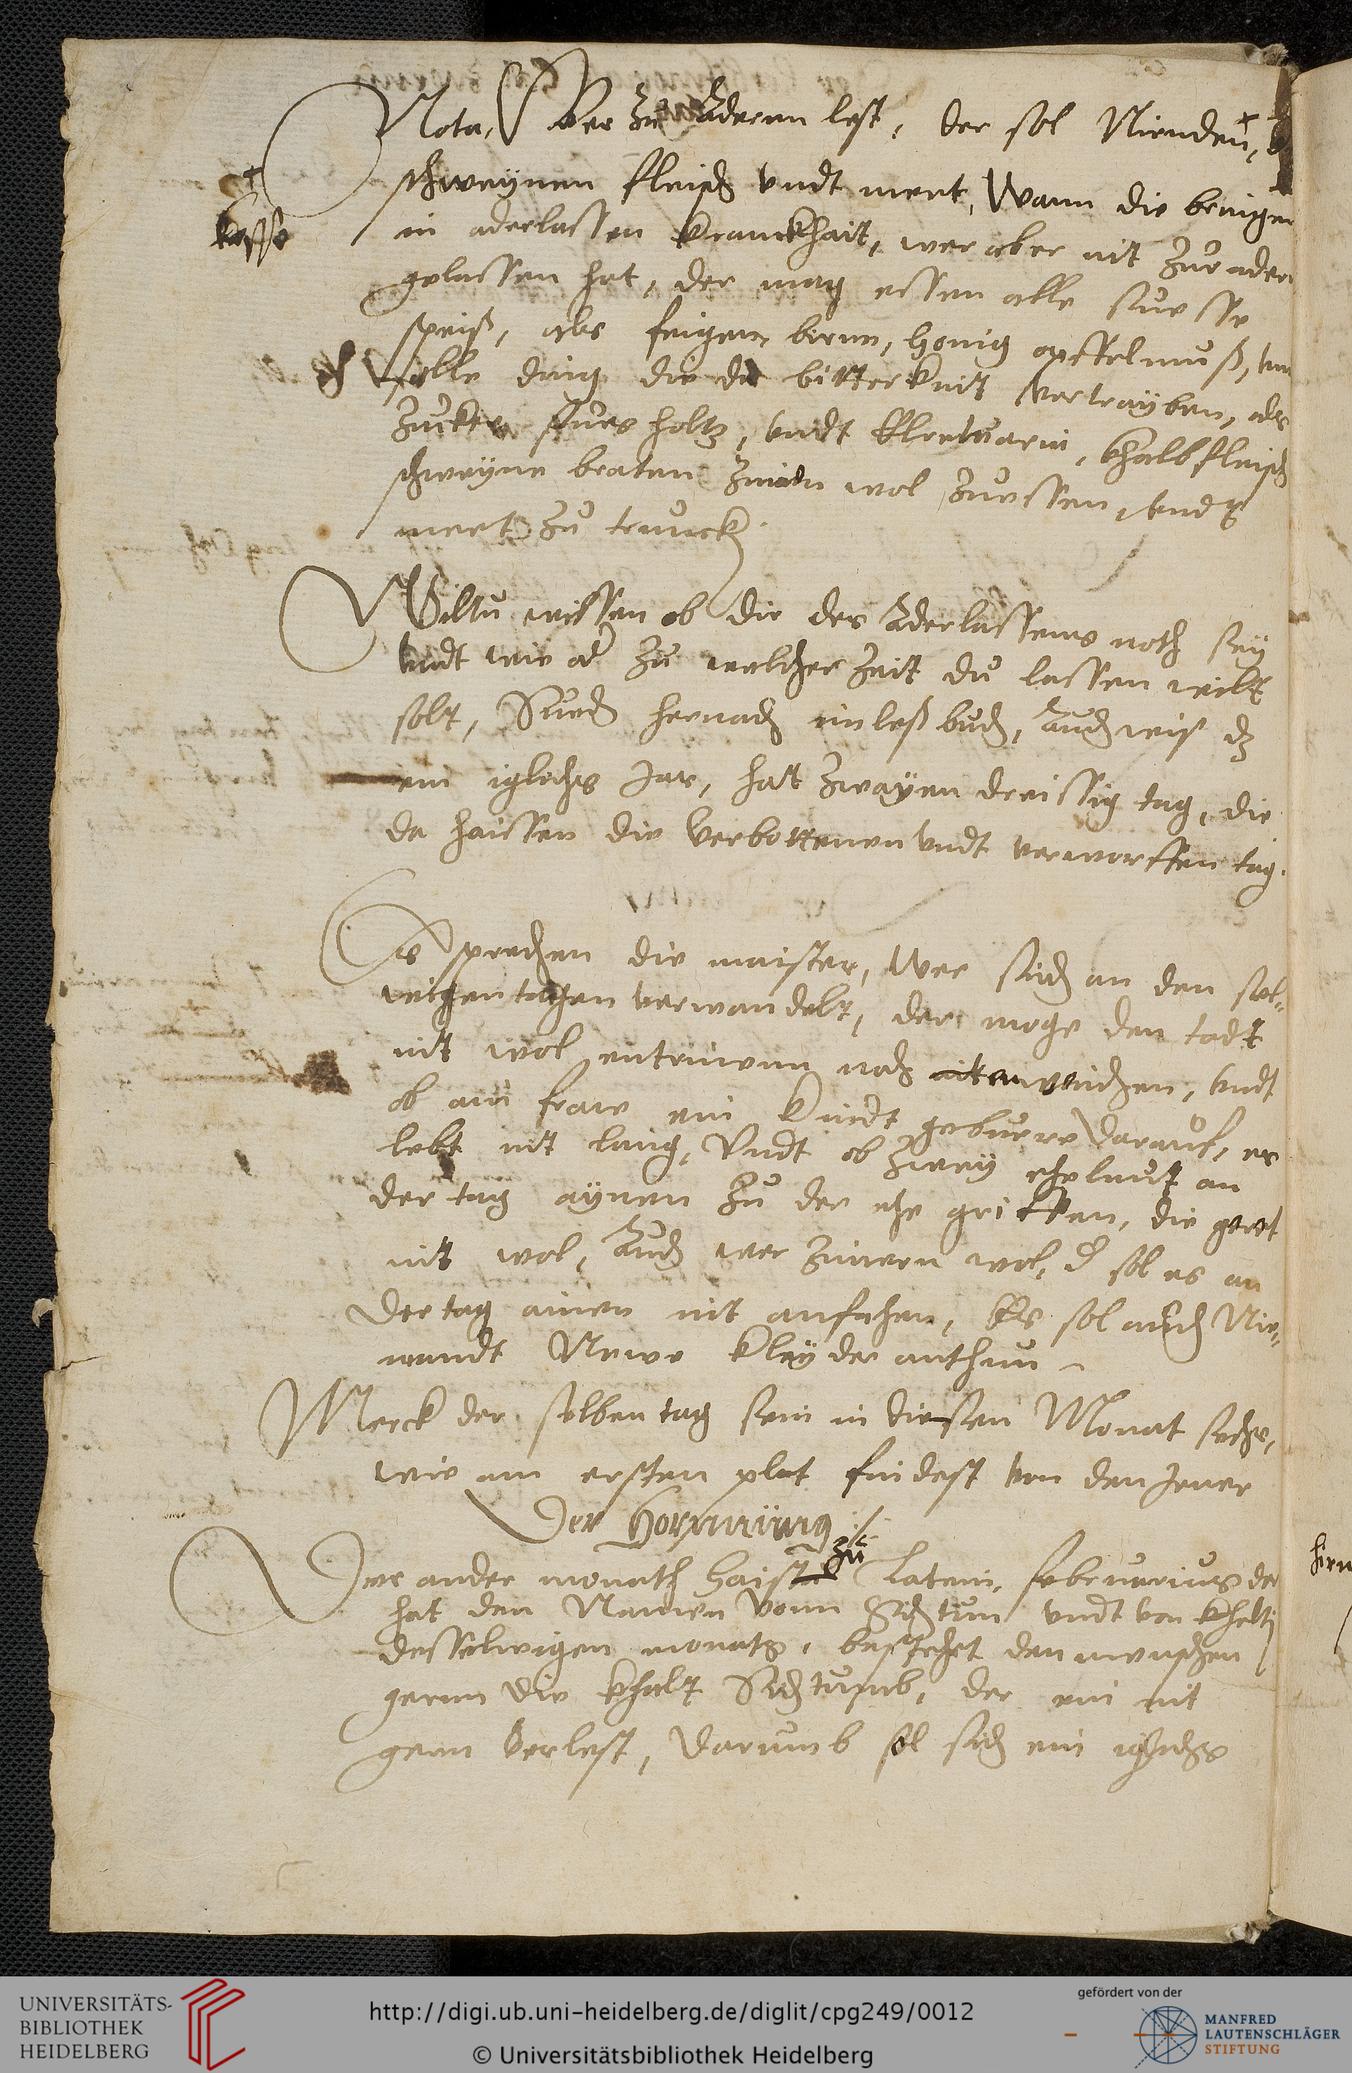 Nota, Wer zu Aderenn lest, der sol Meyden,
schweynen fleisch vndt meet, Wann die bringen
kesse
in aderlassen kranckhait, wer aber nit zur ader
gelassen hat, der mag essen alle suesse
speiß, als feigen birnn, honig opffelmuß, vnd
alle ding die da bitterkait vertrayben, als
zucker sues holtz, vndt Electuarii, khalbfleisch
schweyne braten zimen wol zuessen, vndt
meet zu trinckh
Wiltu wissen ob dir des Aderlassens noth sey
vndt wie od zu welcher zeit du lassen wilt
solt, Suech hernach im leß buch, Auch wiß dz
ein iglichs Jar, hat zwayen dreissig tag, die
da haissen die Verbottenen vndt verworffen tag.
Es sprechen die maister, Wer sich an den sel-
wigen tagen verwandelt, der moge dem todt
nit wol entrinnen noch entweichen, vndt
ob ain fraw ein Kindt gebuere darauf, es
lebt nit lang, Vndt ob zwey eheleut an
der tag aynen zu der ehe griffen, die geret
nit wol, Auch wer zimern wol, d sol es an
der tag ainen nit anfahen, Es sol auch Nie-
mandt Newe Kleyder anthun
Merck der selben tag sein in diesen Monat sechs,
wie am ersten plat findest von den Jener
Der Hornnung
zu
Der ander monath haist Latein, februarius der
hat den Namen vonn Siechtum vndt von khelt
desselwigen monats, bestehet den menschen
gernn die khalt Siechtumb, der ein nit
gern verlest, darumb sol sich ein iglichs
hirn
UNIVERSITÄTS-
BIBLIOTHEK
HEIDELBERG
http://digi.ub.uni-heidelberg.de/diglit/cpg249/0012
© Universitätsbibliothek Heidelberg
gefördert von der
MANFRED
LAUTENSCHLÄGER
STIFTUNG